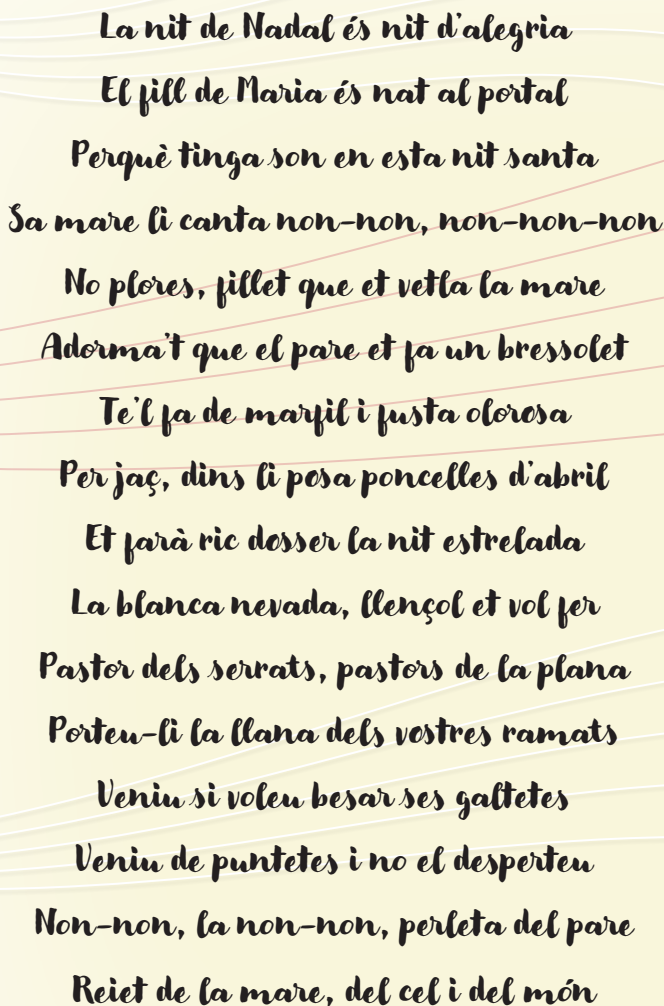 La nit de Nadal és nit d'alegria
El fill de Maria és nat al portal
Perquè tinga son en esta nit santa
Sa mare li canta non-non, non-non-non
No plores, fillet que et vetla la mare
Adorma't que el pare et fa un bressolet
Te'l fa de marfil i fusta olorosa
Per jaç, dins li posa poncelles d'abril
Et farà ric dosser la nit estrelada
La blanca nevada, llençol et vol fer
Pastor dels serrats, pastors de la plana
Porteu-li la llana dels vostres ramats
Veniu si voleu besar ses galtetes
Veniu de puntetes i no el desperteu
Non-non, la non-non, perleta del pare
Reiet de la mare, del cel i del món